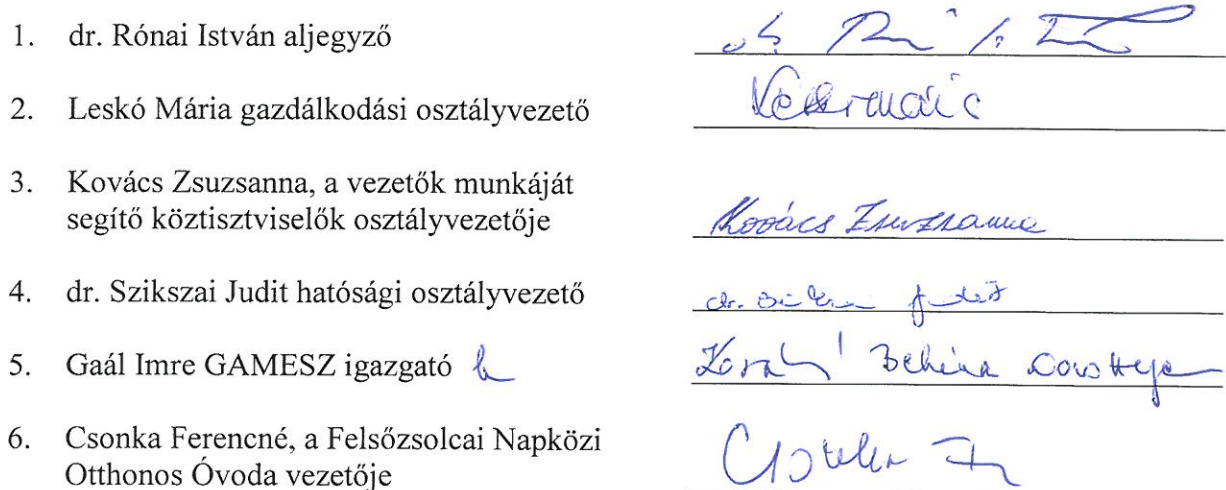 1. dr. Rónai István aljegyző
2. Leskó Mária gazdálkodási osztályvezető
3. Kovács Zsuzsanna, a vezetők munkáját
segítő köztisztviselők osztályvezetője
Kovács Zsuzsanna
4. dr. Szikszai Judit hatósági osztályvezető
dr. Judit
5. Gaál Imre GAMESZ igazgató h
6. Csonka Ferencné, a Felsőzsolcai Napközi
Otthonos Óvoda vezetője